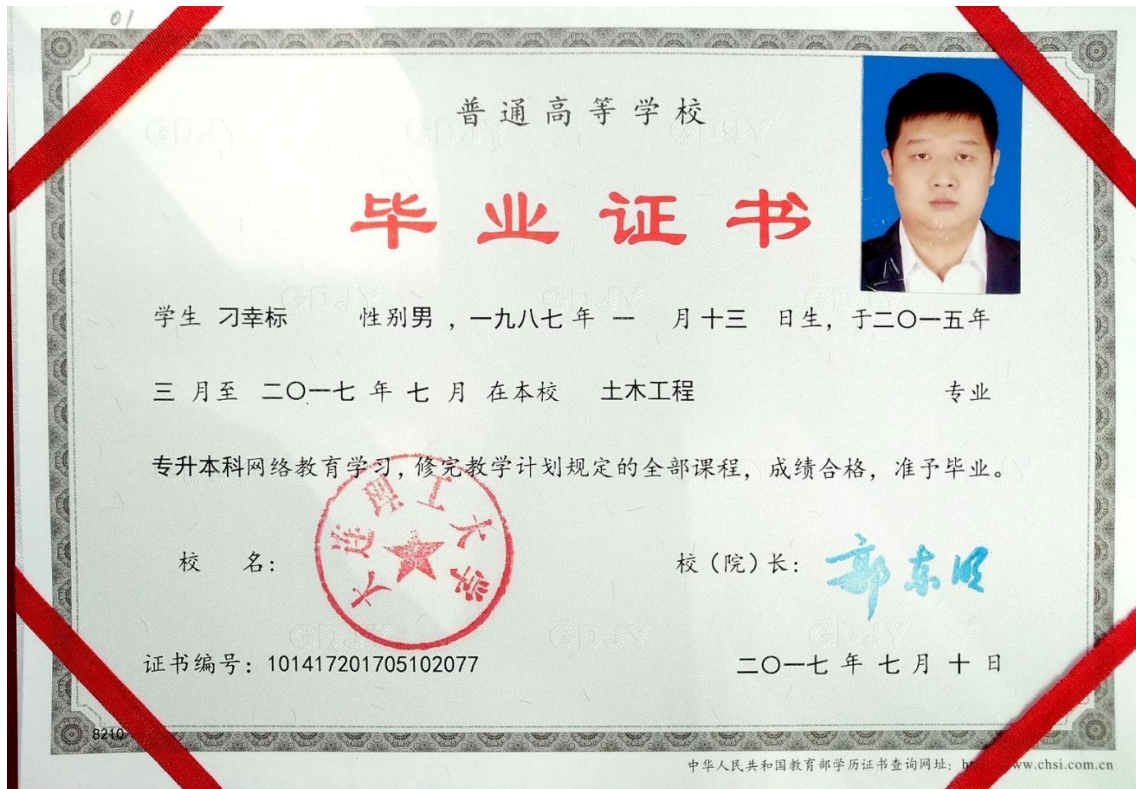 01
普通高等学校
毕业证书
学生 刁幸标 性别男，一九八七年 一 月十三 日生，于二〇一五年
三 月至 二〇一七 年 七 月 在本校 土木工程 专业
专升本科网络教育学习，修完教学计划规定的全部课程，成绩合格，准予毕业。
大连理工大学
校 名： 校（院）长： 郭东明
证书编号：101417201705102077 二〇一七 年 七 月 十 日
8210
中华人民共和国教育部学历证书查询网址：ww.chsi.com.cn